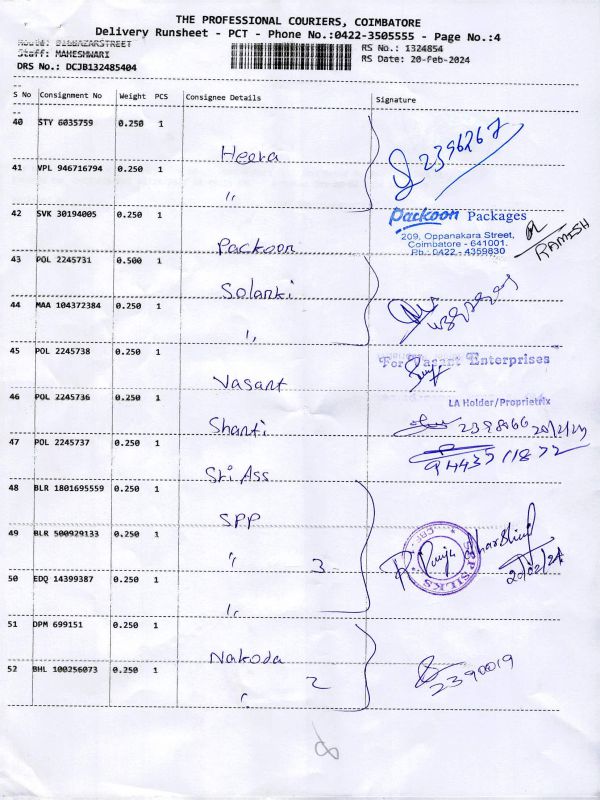 THE PROFESSIONAL COURIERS, COIMBATORE
Delivery Runsheet - PCT - Phone No.:0422-3505555 - Page No.:4
Staff: MAHESHWARI
RS No.: 1324854
DRS No.: DCJB132485404
RS Date: 20-Feb-2024
S No Consignment No Weight PCS Consignee Details Signature
40 STY 6035759 0.250 1 Heera 2396267
41 VPL 946716794 0.250 1 "
42 SVK 30194005 0.250 1 Packoon
Packoon Packages
209, Oppanakara Street,
Coimbatore - 641001.
Ph.: 0422 - 4359830
RAMISH
43 POL 2245731 0.500 1 Solanki
44 MAA 104372384 0.250 1 "
45 POL 2245738 0.250 1 Vasant
For Vasant Enterprises
LA Holder/Proprietrix
46 POL 2245736 0.250 1 Shanti
47 POL 2245737 0.250 1 Sri Ass
48 BLR 1801695559 0.250 1 SPP
49 BLR 500929133 0.250 1 " 3
50 EDQ 14399387 0.250 1 "
20/02/24
51 DPM 699151 0.250 1 Nakoda
52 BHL 100256073 0.250 1 " 2
2390019
8